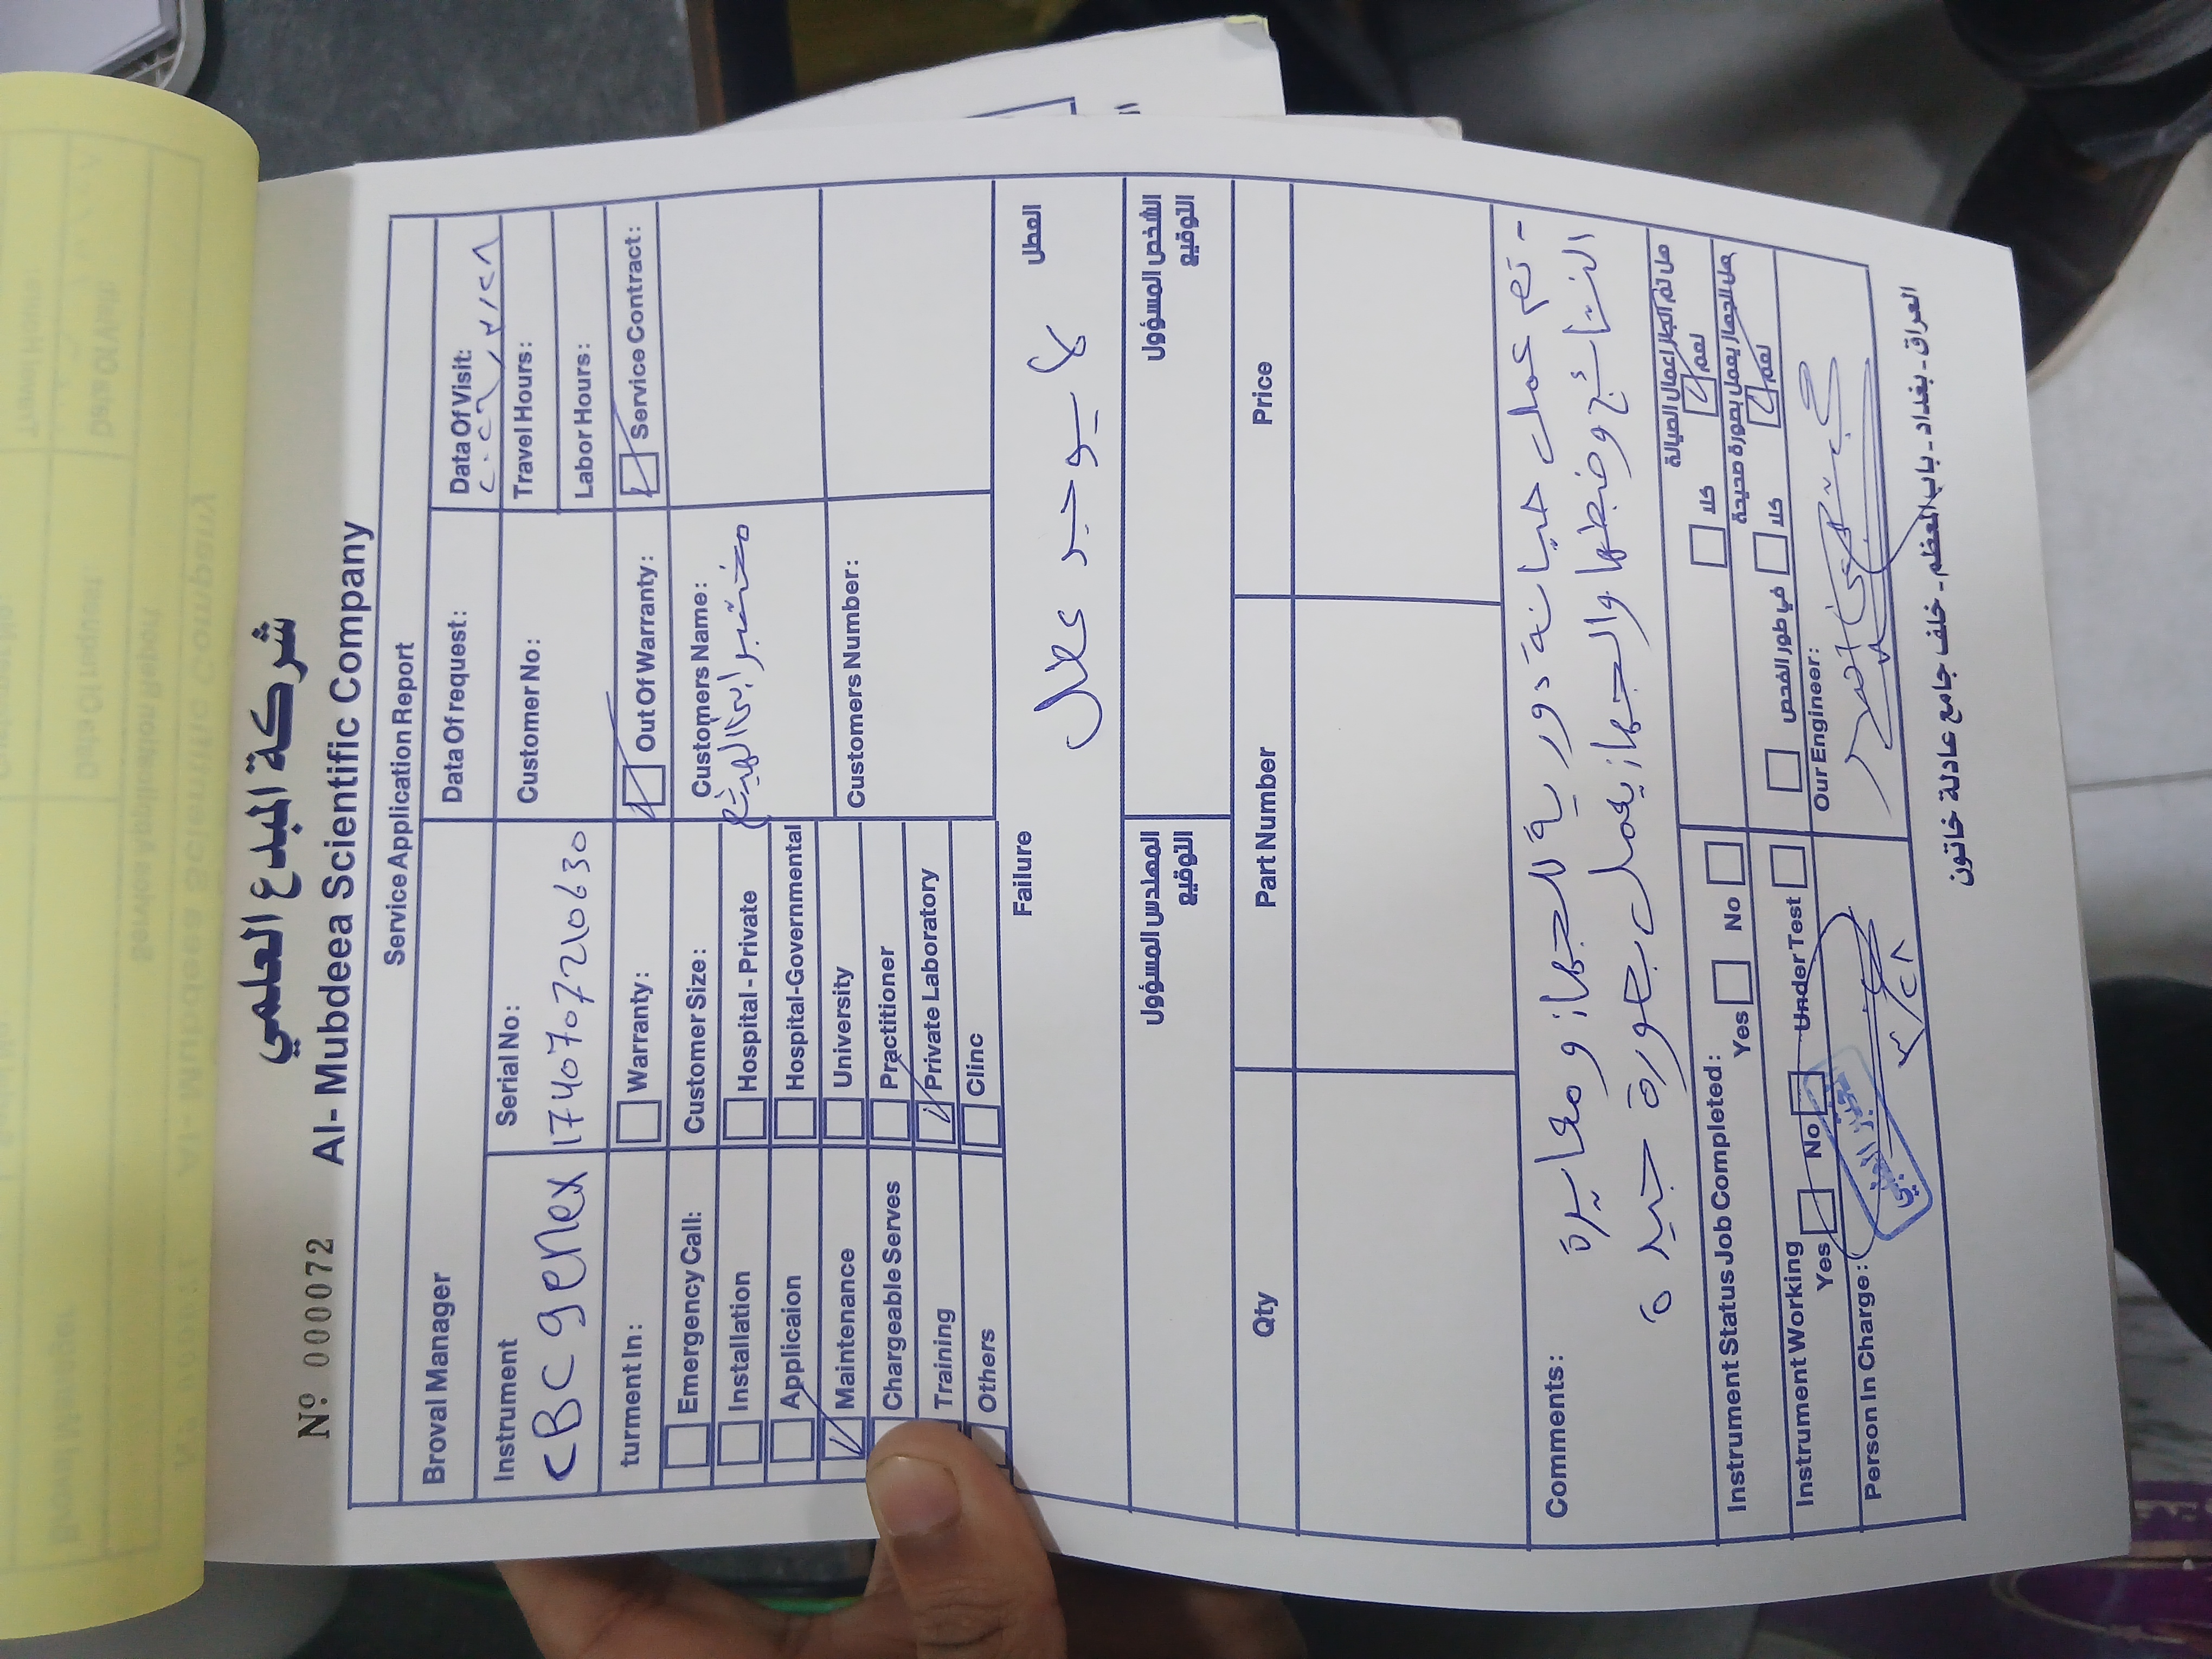 شركة المبدع العلمي
Nº 000072 Al- Mubdeea Scientific Company
Service Application Report
Broval Manager
Data Of request:
Data Of Visit:
٢٠٢٦/٣/٢٨
Instrument
CBC genex
Serial No:
17407072210630
Customer No:
Travel Hours:
Labor Hours:
turment In:
Warranty:
Out Of Warranty:
Service Contract:
Emergency Call:
Customer Size:
Customers Name:
مختبر ابن الهيثم
Installation
Hospital - Private
Applicaion
Hospital-Governmental
Maintenance
University
Customers Number:
Chargeable Serves
Practitioner
Training
Private Laboratory
Others
Clinc
Failure
العطل
لا يوجد عطل
المهندس المسؤول
التوقيع
الشخص المسؤول
التوقيع
Qty
Part Number
Price
Comments:
- تم عمل صيانة دورية للجهاز و معايرة
النتائج وضبطها والجهاز يعمل بصورة جيدة
Instrument Status Job Completed:
Yes
No
هل تم انجاز اعمال الصيانة
كلا
نعم
Instrument Working
Yes
No
Under Test
هل الجهاز يعمل بصورة صحيحة
في طور الفحص
كلا
نعم
Person In Charge:
٣/٢٨
Our Engineer:
العراق - بغداد - باب المعظم - خلف جامع عادلة خاتون